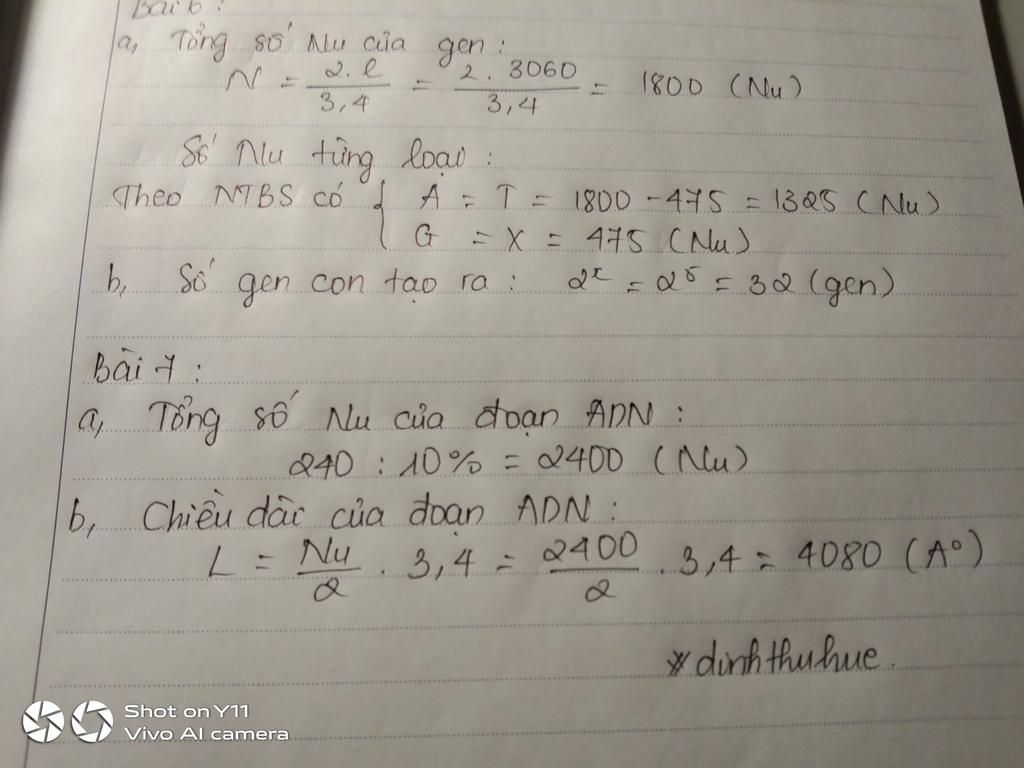 Bài 6 :
a, Tổng số Nu của gen :
N = 2.l / 3,4 = 2 . 3060 / 3,4 = 1800 (Nu)
Số Nu từng loại :
Theo NTBS có { A = T = 1800 - 475 = 1325 (Nu)
G = X = 475 (Nu)
b, Số gen con tạo ra : 2^x = 2^5 = 32 (gen)
Bài 7 :
a, Tổng số Nu của đoạn ADN :
240 : 10% = 2400 (Nu)
b, Chiều dài của đoạn ADN :
L = Nu / 2 . 3,4 = 2400 / 2 . 3,4 = 4080 (A°)
* dinhthuhue.
Shot on Y11
Vivo AI camera